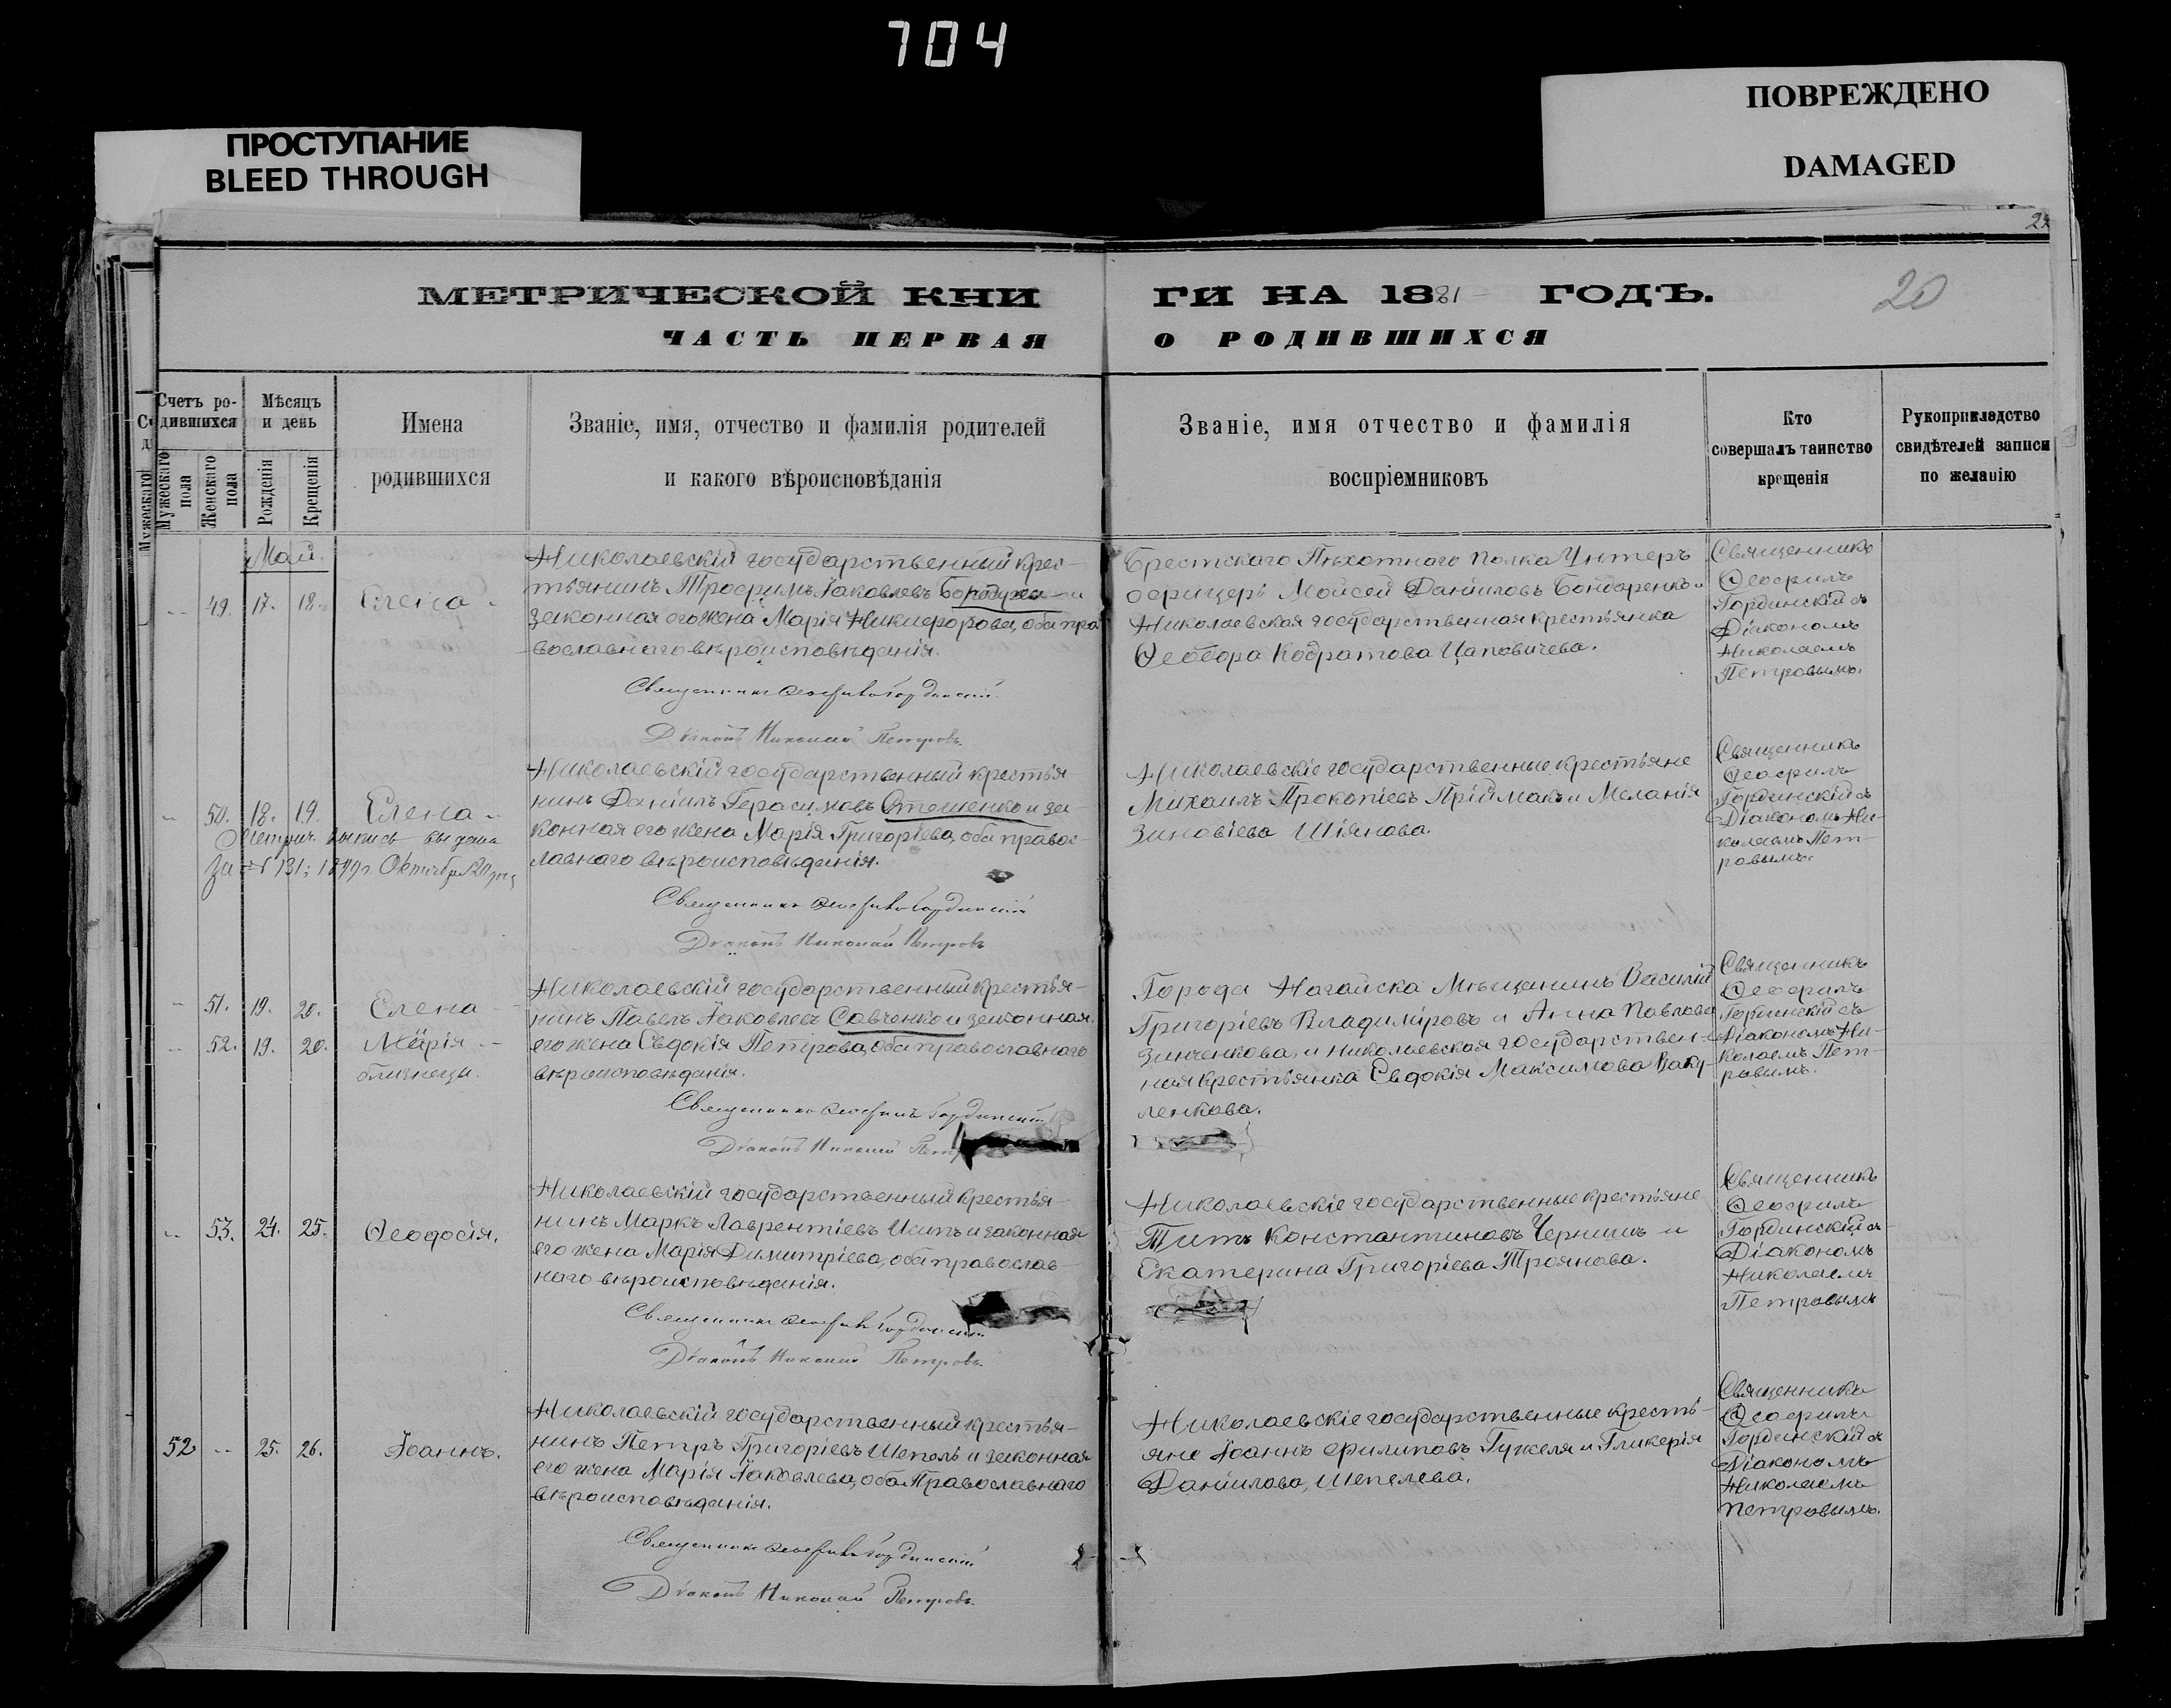 704
ПРОСТУПАНИЕ
BLEED THROUGH
ПОВРЕЖДЕНО
DAMAGED
МЕТРИЧЕСКОЙ КНИ
ГИ НА 1881 ГОДЪ.
20
ЧАСТЬ ПЕРВАЯ
О РОДИВШИХСЯ
Счетъ ро-
дившихся
Мужескаго пола
Женскаго пола
Мѣсяцъ
и день
Рожденія
Крещенія
Имена
родившихся
Званіе, имя, отчество и фамилія родителей
и какого вѣроисповѣданія
Званіе, имя отчество и фамилія
воспріемниковъ
Кто
совершалъ таинство
крещенія
Рукоприкладство
свидѣтелей записи
по желанію
Май.
49. 17. 18. Елена
Николаевскій государственный крес-
тьянинъ Трофимъ Іаковлевъ и
законная его жена Марія Никифорова, оба пра
вославнаго вѣроисповѣданія.
Священникъ Ѳеофилъ Гординскій
Діаконъ Николай Петровъ.
Брестскаго Пѣхотнаго полка Унтеръ
офицеръ Моисей Даніиловъ Бондаренко и
Николаевская государственная крестьянка
Ѳеодора Кодратова Цаповичева.
Священникъ
Ѳеофилъ
Гординскій съ
Діакономъ
Николаемъ
Петровымъ.
50. 18. 19. Елена
Метрич. выпись выдана
за № 131; 1899 г. Октября 20 дня
Николаевскій государственный крестья-
нинъ Даніилъ Герасимовъ Стешенко и за-
конная его жена Марія Григоріева, оба правос-
лавнаго вѣроисповѣданія.
Священникъ Ѳеофилъ Гординскій
Діаконъ Николай Петровъ
Николаевскіе государственные крестьяне
Михаилъ Прокопіевъ Пріймакъ и Меланія
Зиновіева Шіянова.
Священникъ
Ѳеофилъ
Гординскій съ
Діакономъ Ни-
колаемъ Пет-
ровымъ.
51. 19. 20. Елена
52. 19. 20. Марія
близнецы.
Николаевскій государственный крестья-
нинъ Павелъ Іаковлевъ Савченко и законная
его жена Евдокія Петрова, оба православнаго
вѣроисповѣданія.
Священникъ Ѳеофилъ Гординскій
Діаконъ Николай
Города Ногайска Мѣщанинъ Василій
Григоріевъ Владиміровъ и Анна Павлова
Зинченкова, и Николаевская государствен-
ная крестьянка Евдокія Максимова Ваку-
ленкова.
Священникъ
Ѳеофилъ
Гординскій съ
Діакономъ Ни-
колаемъ Пет-
ровымъ.
53. 24. 25. Ѳеодосія.
Николаевскій государственный крестья-
нинъ Маркъ Лаврентіевъ и законная
его жена Марія Димитріева, оба православ-
наго вѣроисповѣданія.
Священникъ Ѳеофилъ Гординскій
Діаконъ Николай Петровъ.
Николаевскіе государственные крестьяне
Титъ Константиновъ Чернишъ и
Екатерина Григоріева Троянова.
Священникъ
Ѳеофилъ
Гординскій съ
Діакономъ
Николаемъ
Петровымъ
52 25. 26. Іоаннъ.
Николаевскій государственный крестья-
нинъ Петръ Григоріевъ Шепель и законная
его жена Марія Іаковлева, оба Православнаго
вѣроисповѣданія.
Священникъ Ѳеофилъ Гординскій
Діаконъ Николай Петровъ.
Николаевскіе государственные кресть-
яне Іоаннъ Филиповъ Гужеля и Гликерія
Даніилова, Шепелева.
Священникъ
Ѳеофилъ
Гординскій съ
Діакономъ
Николаемъ
Петровымъ.